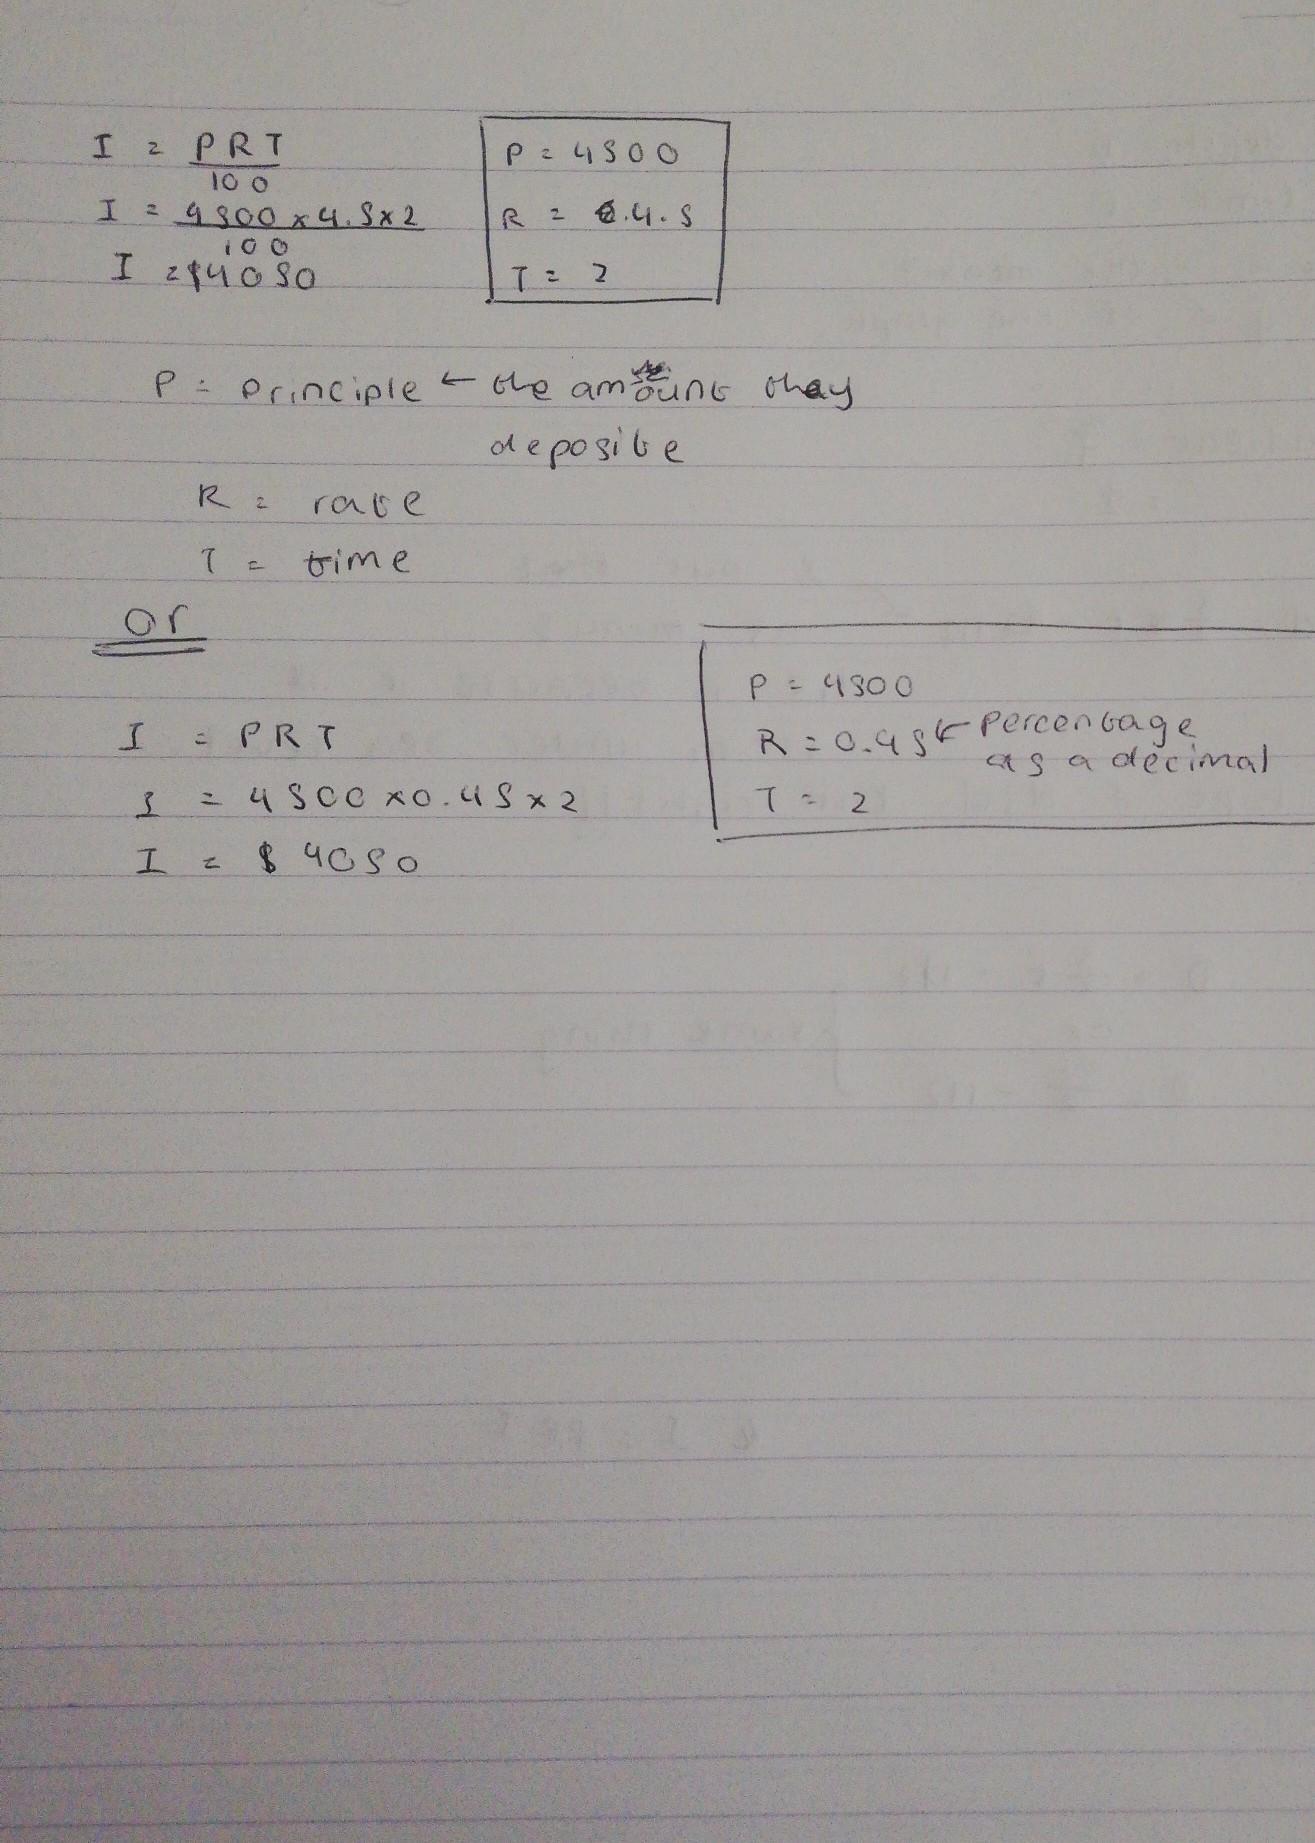 I = PRT
100
I = 4500 x 4.5 x 2
100
I = $4050
P = 4500
R = 4.5
T = 2
P = principle ← the amount they
deposite
R = rate
T = time
or
I = PRT
I = 4500 x 0.45 x 2
I = $ 4050
P = 4500
R = 0.45 ← Percentage
as a decimal
T = 2